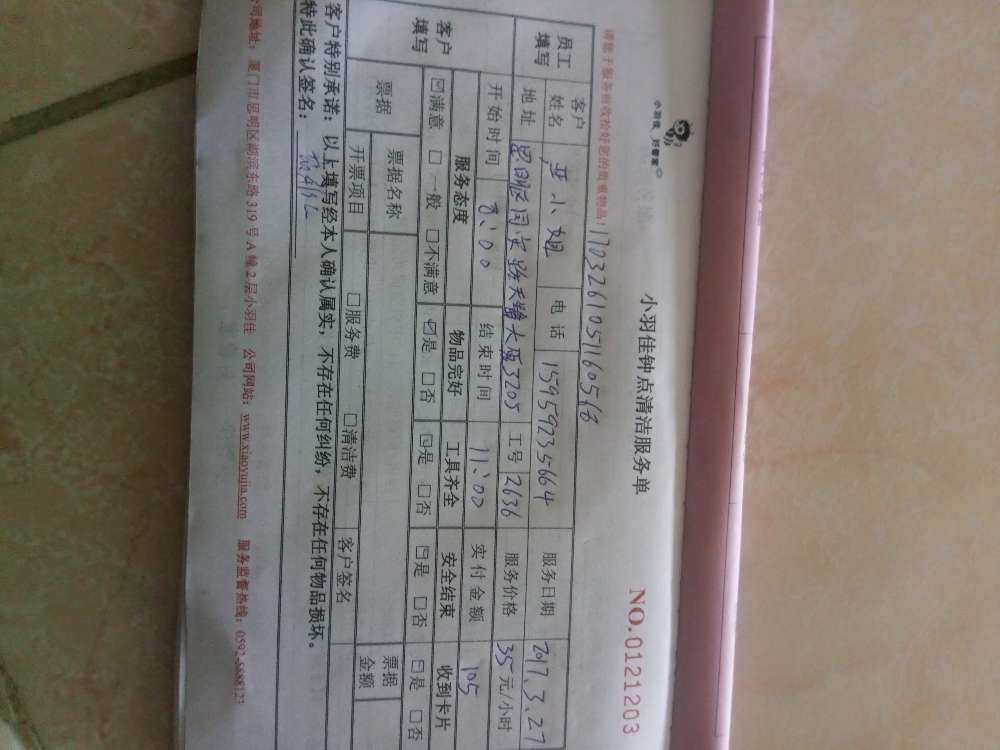 小羽佳 好管家
小羽佳钟点清洁服务单
NO.0121203
请您于服务前收拾好您的贵重物品:
员工填写 客户姓名 小姐 电话 15959235664 服务日期 2017.3.27
地址 3205 工号 2636 服务价格 35元/小时
客户填写 开始时间 8:00 结束时间 11:00 实付金额 105
服务态度 物品完好 工具齐全 安全结束 收到卡片
☑满意 □一般 □不满意 ☑是 □否 ☑是 □否 ☑是 □否 ☑是 □否
票据 票据名称 票据金额
开票项目 □服务费 □清洁费 客户签名
客户特别承诺：以上填写经本人确认属实，不存在任何纠纷，不存在任何物品损坏。
特此确认签名：
公司地址：厦门市思明区湖滨东路319号A幢2层小羽佳 公司网站：www.xiaoyujia.com 服务监督热线：